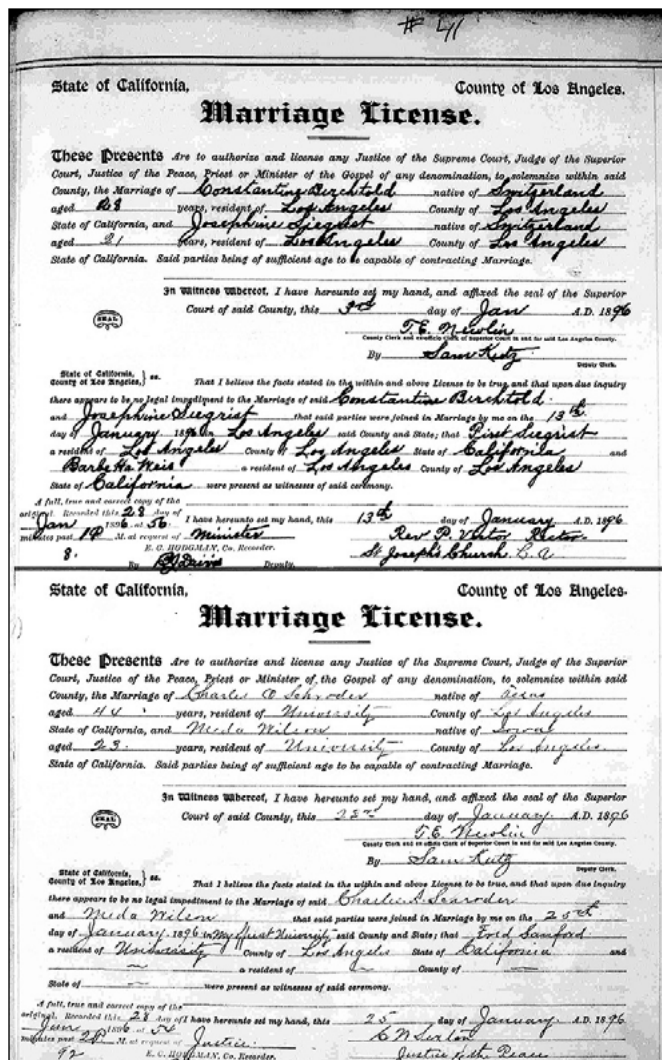 # 41
State of California, County of Los Angeles.
Marriage License.
These Presents Are to authorize and license any Justice of the Supreme Court, Judge of the Superior
Court, Justice of the Peace, Priest or Minister of the Gospel of any denomination, to solemnize within said
County, the Marriage of Constantine Berchtold native of Switzerland
aged 28 years, resident of Los Angeles County of Los Angeles
State of California, and Josephine Siegrist native of Switzerland
aged 21 years, resident of Los Angeles County of Los Angeles
State of California. Said parties being of sufficient age to be capable of contracting Marriage.
In Witness Whereof, I have hereunto set my hand, and affixed the seal of the Superior
SEAL Court of said County, this 3rd day of Jan A.D. 1896
T.E. Newlin
County Clerk and ex-officio Clerk of Superior Court in and for said Los Angeles County.
By Sam Kutz
Deputy Clerk.
State of California,
County of Los Angeles, } ss. That I believe the facts stated in the within and above License to be true, and that upon due inquiry
there appears to be no legal impediment to the Marriage of said Constantine Berchtold
and Josephine Siegrist that said parties were joined in Marriage by me on the 13th
day of January 1896 in Los Angeles said County and State; that Siegrist
a resident of Los Angeles County of Los Angeles State of California and
Weis a resident of Los Angeles County of Los Angeles
State of California were present as witnesses of said ceremony.
A full, true and correct copy of the
original. Recorded this 28 day of I have hereunto set my hand, this 13th day of January A.D. 1896
Jan 1896 at 56
minutes past M. at request of Minister Rev. P. Victor Rector
8. E. C. HODGMAN, Co. Recorder. St Joseph's Church
By Deputy.
State of California, County of Los Angeles.
Marriage License.
These Presents Are to authorize and license any Justice of the Supreme Court, Judge of the Superior
Court, Justice of the Peace, Priest or Minister of the Gospel of any denomination, to solemnize within said
County, the Marriage of Charles O Schroder native of Texas
aged 44 years, resident of University County of Los Angeles
State of California, and Meda Wilson native of Iowa
aged 23 years, resident of University County of Los Angeles
State of California. Said parties being of sufficient age to be capable of contracting Marriage.
In Witness Whereof, I have hereunto set my hand, and affixed the seal of the Superior
SEAL Court of said County, this day of January A.D. 1896
T.E. Newlin
County Clerk and ex officio Clerk of Superior Court in and for said Los Angeles County.
By Sam Kutz
Deputy Clerk.
State of California,
County of Los Angeles, } ss. That I believe the facts stated in the within and above License to be true, and that upon due inquiry
there appears to be no legal impediment to the Marriage of said Schroder
and Meda Wilson that said parties were joined in Marriage by me on the 25th
day of January 1896 in My University said County and State; that Fred Sanford
a resident of University County of Los Angeles State of California and
— a resident of — County of —
State of — were present as witnesses of said ceremony.
A full, true and correct copy of the
original. Recorded this 28 day of I have hereunto set my hand, this 25 day of January A.D. 1896
1896 at 54
minutes past M. at request of Justice.
92 E. C. HODGMAN, Co. Recorder. Justice of the Peace